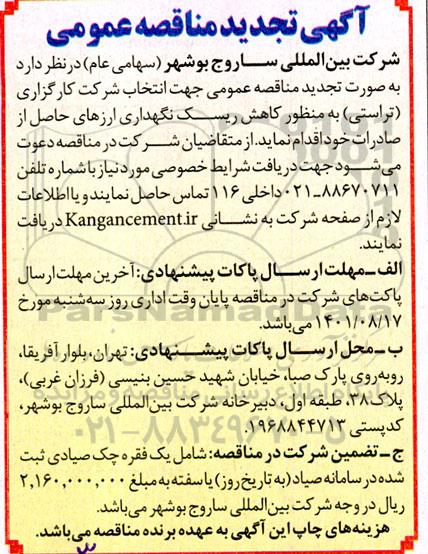 آگهی تجدید مناقصه عمومی
شرکت بین‌المللی ســاروج بوشهر (سهامی عام) در نظر دارد
به صورت تجدید مناقصه عمومی جهت انتخاب شرکت کارگزاری
(تراستی) به منظور کاهش ریسک نگهداری ارزهای حاصل از
صادرات خود اقدام نماید. از متقاضیان شرکت در مناقصه دعوت
می‌شود جهت دریافت شرایط خصوصی مورد نیاز با شماره تلفن
۰۲۱-۸۸۶۷۰۷۱۱ داخلی ۱۱۶ تماس حاصل نمایند و یا اطلاعات
لازم از صفحه شرکت به نشانی Kangancement.ir دریافت
نمایند.
الف ـ مهلت ارســال پاکات پیشنهادی: آخرین مهلت ارسال
پاکت‌های شرکت در مناقصه پایان وقت اداری روز سه‌شنبه مورخ
۱۴۰۱/۰۸/۱۷ می‌باشد.
ب ـ محل ارســال پاکات پیشــنهادی: تهران، بلوار آفریقا،
روبه‌روی پارک صبا، خیابان شهید حسین بنیسی (فرزان غربی)،
پلاک ۳۸، طبقه اول، دبیرخانه شرکت بین‌المللی ساروج بوشهر،
کدپستی ۱۹۶۸۸۴۴۷۱۳.
ج ـ تضمین شرکت در مناقصه: شامل یک فقره چک صیادی ثبت
شده در سامانه صیاد (به تاریخ روز) یا سفته به مبلغ ۲,۱۶۰,۰۰۰,۰۰۰
ریال در وجه شرکت بین‌المللی ساروج بوشهر می‌باشد.
هزینه‌های چاپ این آگهی به عهده برنده مناقصه می‌باشد.
ParsNamadData
۰۲۱-۸۸۳۴۹۶۷۰-۵